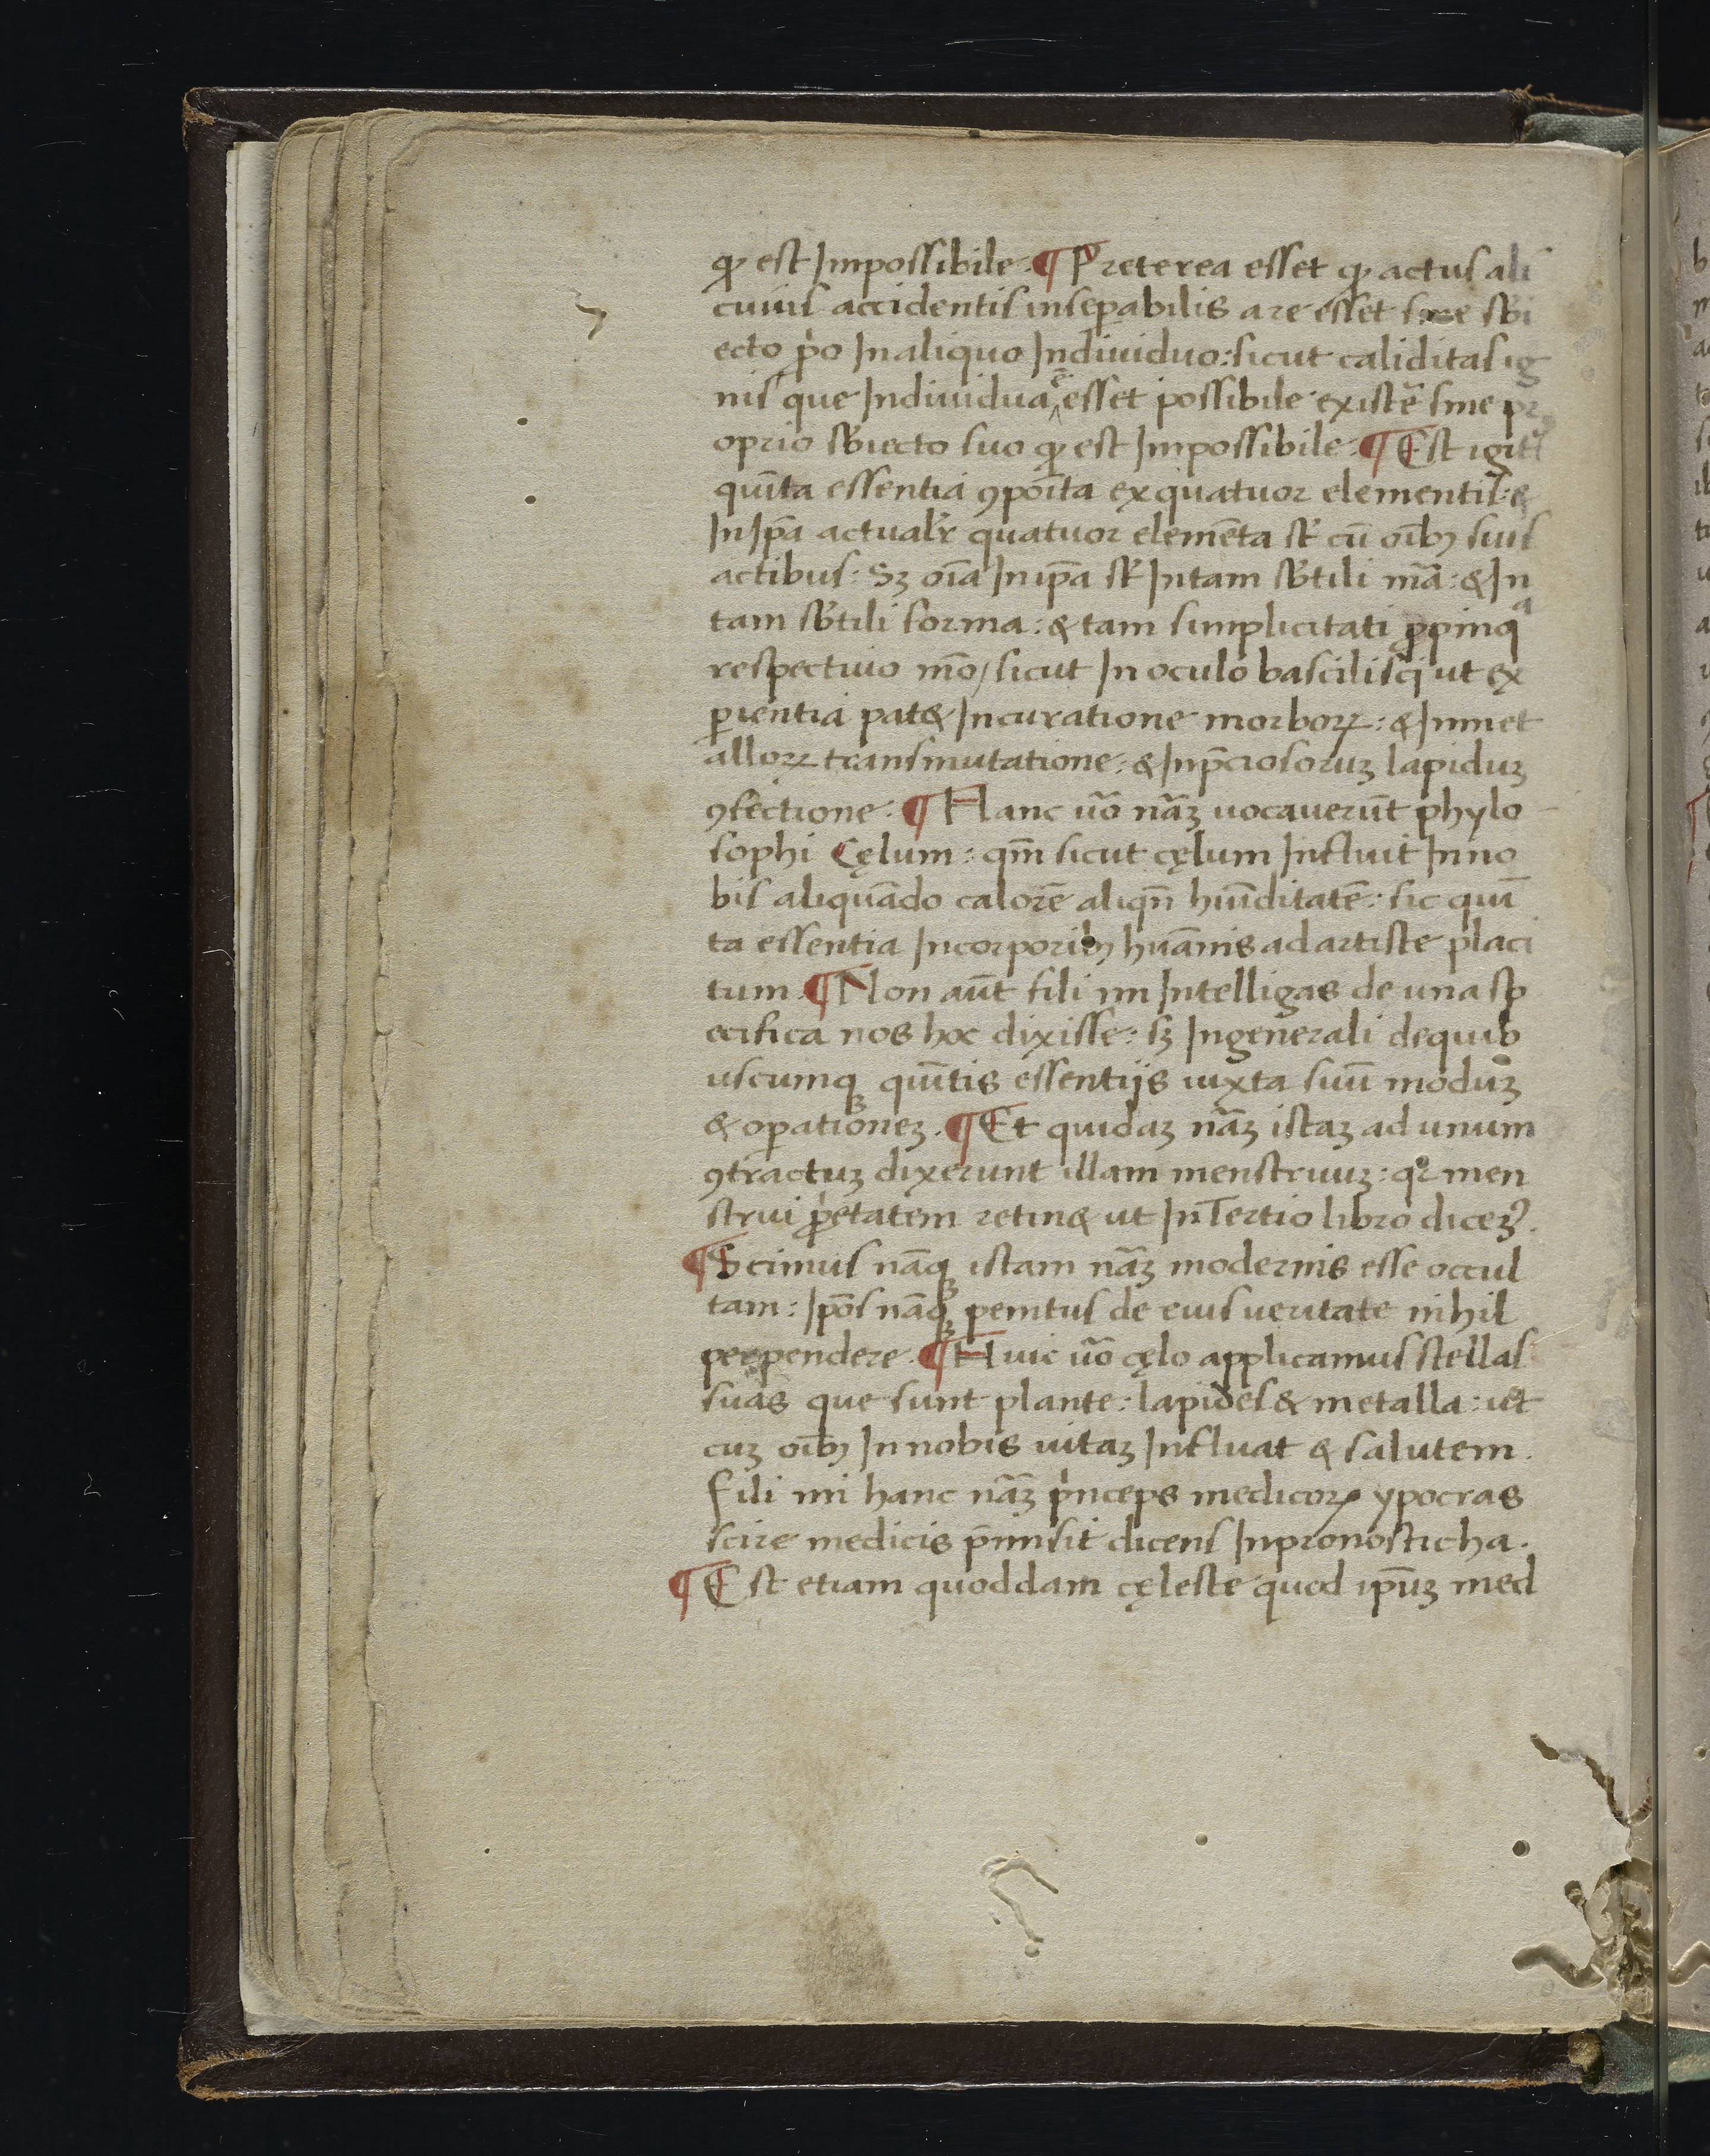 ꝙ est Impossibile: ¶ Preterea esset ꝙ actus ali
cuius accidentis inseꝑabilis a re esset sine sb̄i
ecto p̄o In aliquo Indiuiduo: sicut caliditas ig
nis que Indiuidua ē esset possibile existē sine pr
oprio sb̄iecto suo ꝙ est Impossibile: ¶ Est igit᷑
quīta essentia ꝯpoīta ex quatuor elementis: &
In Ip̄a actualr̄ quatuor elemēta st̄ cū oīb; suis
actibus: Sꝫ oīa In ip̄a st̄ In tam sb̄tili mā: & In
tam sb̄tili forma: & tam simplicitati ꝓpinqᵃ
respectiuo mō/ sicut In oculo bascilisci ut ex
ꝑientia pat& In curatione morboꝝ: & In met
alloꝝ transmutatione: & In p̄ciosoruꝫ lapiduꝫ
ꝯfectione: ¶ Hanc uō nāꝫ uocauerūt phylo
sophi Cęlum: qm̄ sicut cęlum Influit In no
bis aliquādo calorē aliqn̄ huīditatē: sic quī
ta essentia In corporib; huānis ad artiste placi
tum. ¶ Non aūt fili mi Intelligas de una sp
ecifica nos hoc dixisse: sꝫ In generali de quib
uscumqꝫ quītis essentijs iuxta suū moduꝫ
& oꝑationeꝫ. ¶ Et quidaꝫ nāꝫ istaꝫ ad unum
ꝯtractuꝫ dixerunt illam menstruuꝫ: qr men
strui ꝓ̄etatem retin& ut In Tertio libro diceꝫ᷒.
¶ Scimus nāqꝫ istam nāꝫ modernis esse occul
tam: Ip̄os nāqꝫ penitus de eius ueritate nihil
perpendere. ¶ Huic uō cęlo applicamus stellas
suas que sunt plante: lapides & metalla: ut
cuꝫ oīb; In nobis uitaꝫ Influat & salutem.
Fili mi hanc nāꝫ p̄nceps medicoꝝ ypocras
scire medicis p̄misit dicens In pronosticha.
¶ Est etiam quoddam cęleste quod ip̄uꝫ med